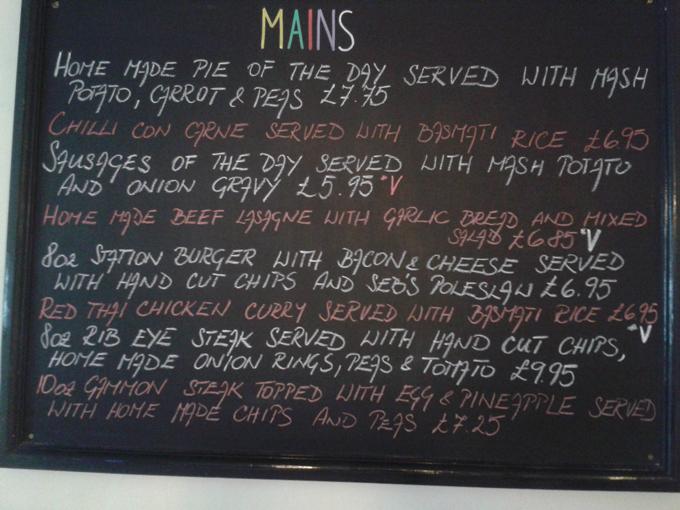 MAINS
HOME MADE PIE OF THE DAY SERVED WITH MASH
POTATO, CARROT & PEAS £7.75
CHILLI CON CARNE SERVED WITH BASMATI RICE £6.95
SAUSAGES OF THE DAY SERVED WITH MASH POTATO
AND ONION GRAVY £5.95 *V
HOME MADE BEEF LASAGNE WITH GARLIC BREAD AND MIXED
SALAD £6.85 *V
8oz STATION BURGER WITH BACON & CHEESE SERVED
WITH HAND CUT CHIPS AND SEB'S POLESLAW £6.95
RED THAI CHICKEN CURRY SERVED WITH BASMATI RICE £6.95
*V
8oz RIB EYE STEAK SERVED WITH HAND CUT CHIPS,
HOME MADE ONION RINGS, PEAS & TOMATO £9.95
10oz GAMMON STEAK TOPPED WITH EGG & PINEAPPLE SERVED
WITH HOME MADE CHIPS AND PEAS £7.25